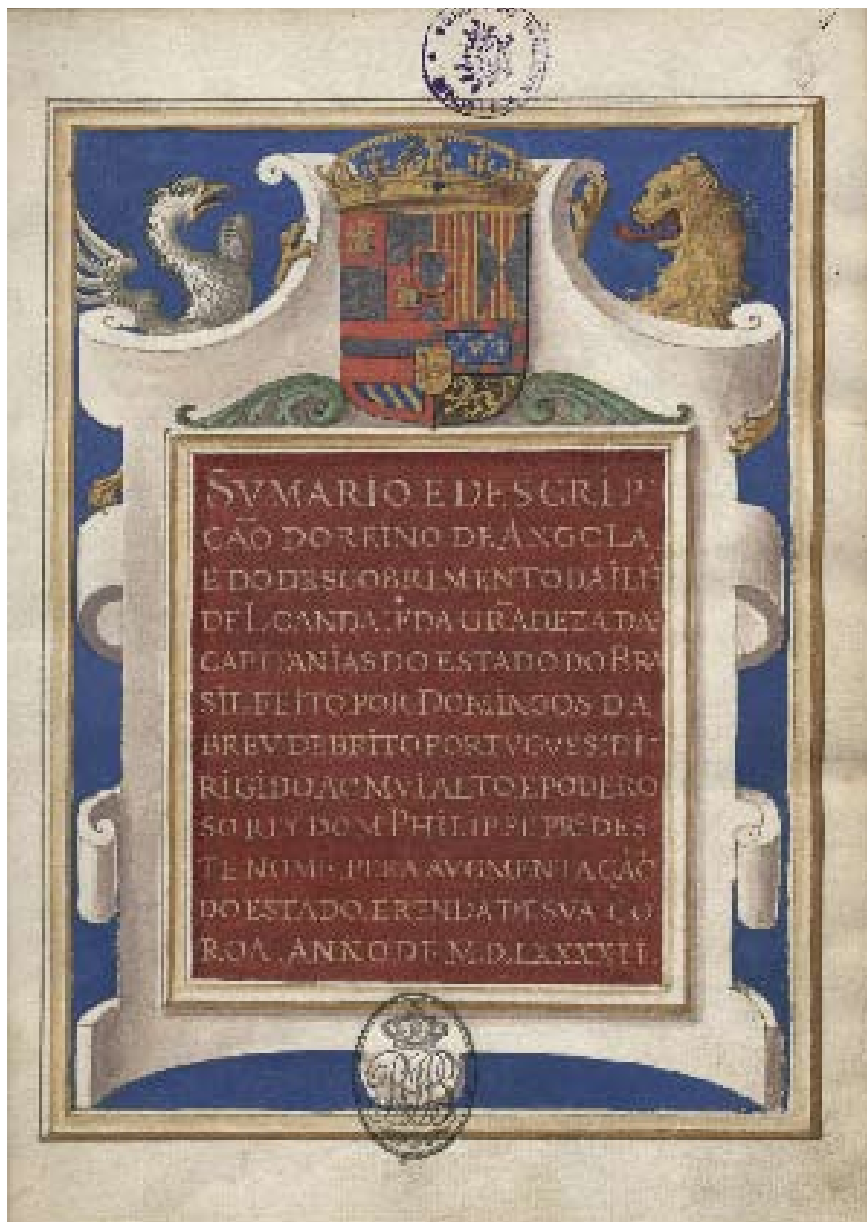 SVMARIO E DESCRIP
ÇÃO DO REINO DE ANGOLA,
E DO DESCOBRIMENTO DA ILH
DE LOANDA. E DA GRÃDEZA DAS
CAPITANIAS DO ESTADO DO BRA
SIL FEITO POR DOMINGOS DA
BREV DE BRITO PORTVGVES: DI-
RIGIDO AO MVI ALTO E PODERO
SO REY DOM PHILIPPE PR.º DES
TE NOME, PERA AVGMENTAÇÃO
DO ESTADO, E RENDA DE SVA CO
ROA. ANNO DE M.D.LXXXXII.